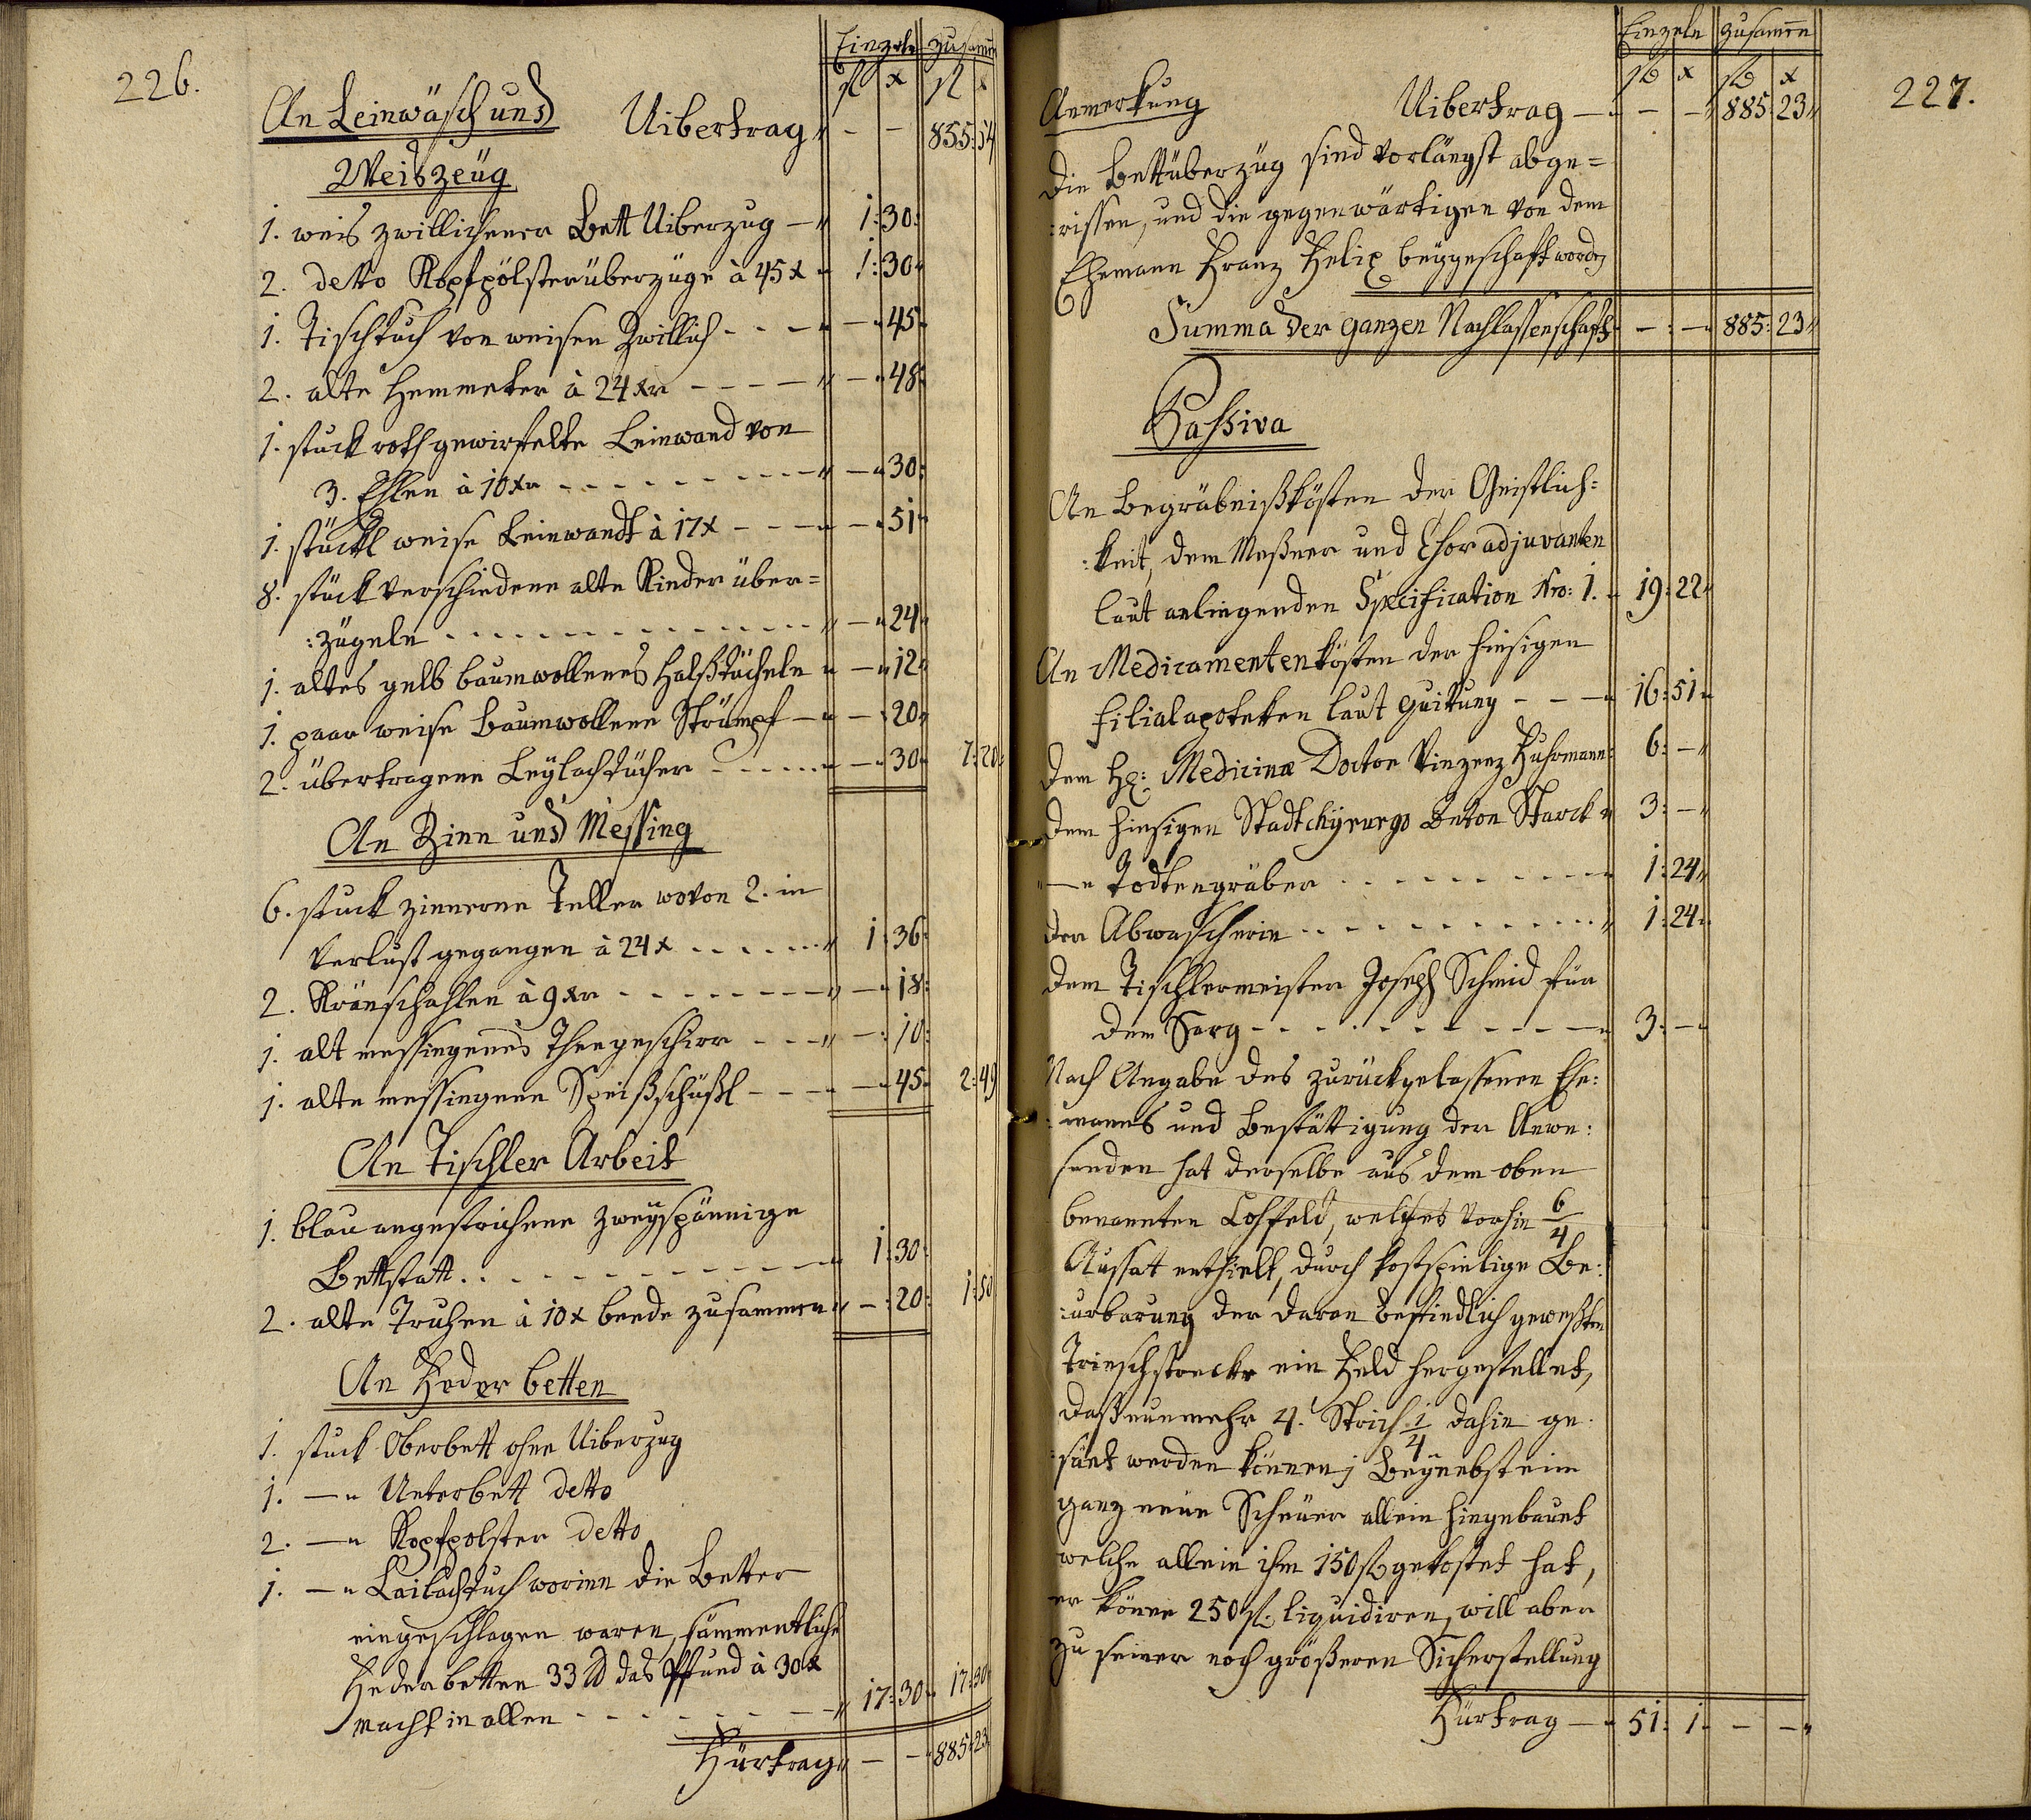 226.
Einzeln zusamen
fl x fl x
An Leinwäsch und Uibertrag - - 855:54
Weiszeüg
1. weis zwillichener Bett Uiberzug 1:30
2. detto Kopfpölsterüberzüge à 45x 1:30
1. Tischtuch von weisen Zwillich - 45
2. alte Hemmeter à 24 xr - 48
1. stuck roth gewirfelte Leinwand von
3. Ehlen à 10xr - 30
1. stückl weise Leinwandt à 17x - 51
8. stück verschiedene alte Kinder über=
:zügeln - 24
1. altes gelb baumwollenes Halßtücheln - 12
1. paar weise Baumwollene Strümpf - 20
2. übertragene Leylachtücher - 30 7:20
An Zinn und Messing
6. stuck zinnerne Teller wovon 2. in
Verlust gegangen à 24x 1:36
2. schahlen à 9xr - 18
1. alt messingenes Theegeschirr - 10
1. alte messingene Speißschüßl - 45 2:49
An Tischler Arbeit
1. blau angestrichene zweyspännige
Bettstatt 1:30
2. alte Truhen à 10x beede zusammen - 20 1:50
An Feder betten
1. stuck Oberbett ohne Uiberzug
1. — " Unterbett detto
2. — " Kopfpolster detto
1. — " Lailachtuch worinn die Better
eingeschlagen waren, sämmentliche
Federbetten 33 ℔ das Pfund à 30x
macht in allen 17:30 17:30
Fürtrag - - 885:23
227.
Einzeln zusamen
fl x fl x
Anmerkung Uibertrag - - 885:23
Die Bettüberzüg sind vorlängst abge=
:rissen, und die gegenwärtigen von dem
Ehemann Franz Felix beygeschaft worden
Summa der ganzen Nachlassenschaft - - 885:23
Passiva
An Begräbnißkösten der Geistlich:
:keit, dem Meßner und Choradjuvanten
laut anliegenden Specification Nro: 1. 19:22
An Medicamentenkösten der hiesigen
Filialapoteken laut Quitung 16:51
Dem H: Medicinæ Doctor Vinzenz Fuhrmann 6: -
Dem hiesigen Stadtchyrurgo Anton Starck 3: -
" — " Todtengräber 1:24
der Abwascherin 1:24
Dem Tischlermeister Joseph Schmid für
den Sarg 3: -
Nach Angabe des zurückgelassenen Ehe:
:manns und Bestättigung der Anwe:
senden hat derselbe aus dem oben
benannten Lohfeld, welches vorhin 6/4
Aussatt enthielt, durch kostspielige Be:
:urbarung der daran befindlich gewesten
Trieschstrecke ein Feld hergestellet,
daß nunmehr 4. Strich 1/4 dahin ge:
:säet werden können; Beynebst eine
ganz neue Scheuer allein hingebauet
welche allein ihm 150 fl gekostet hat,
er könne 250 fl. liquidiren, will aber
zu seiner noch größeren Sicherstellung
Fürtrag 51: 1 - -